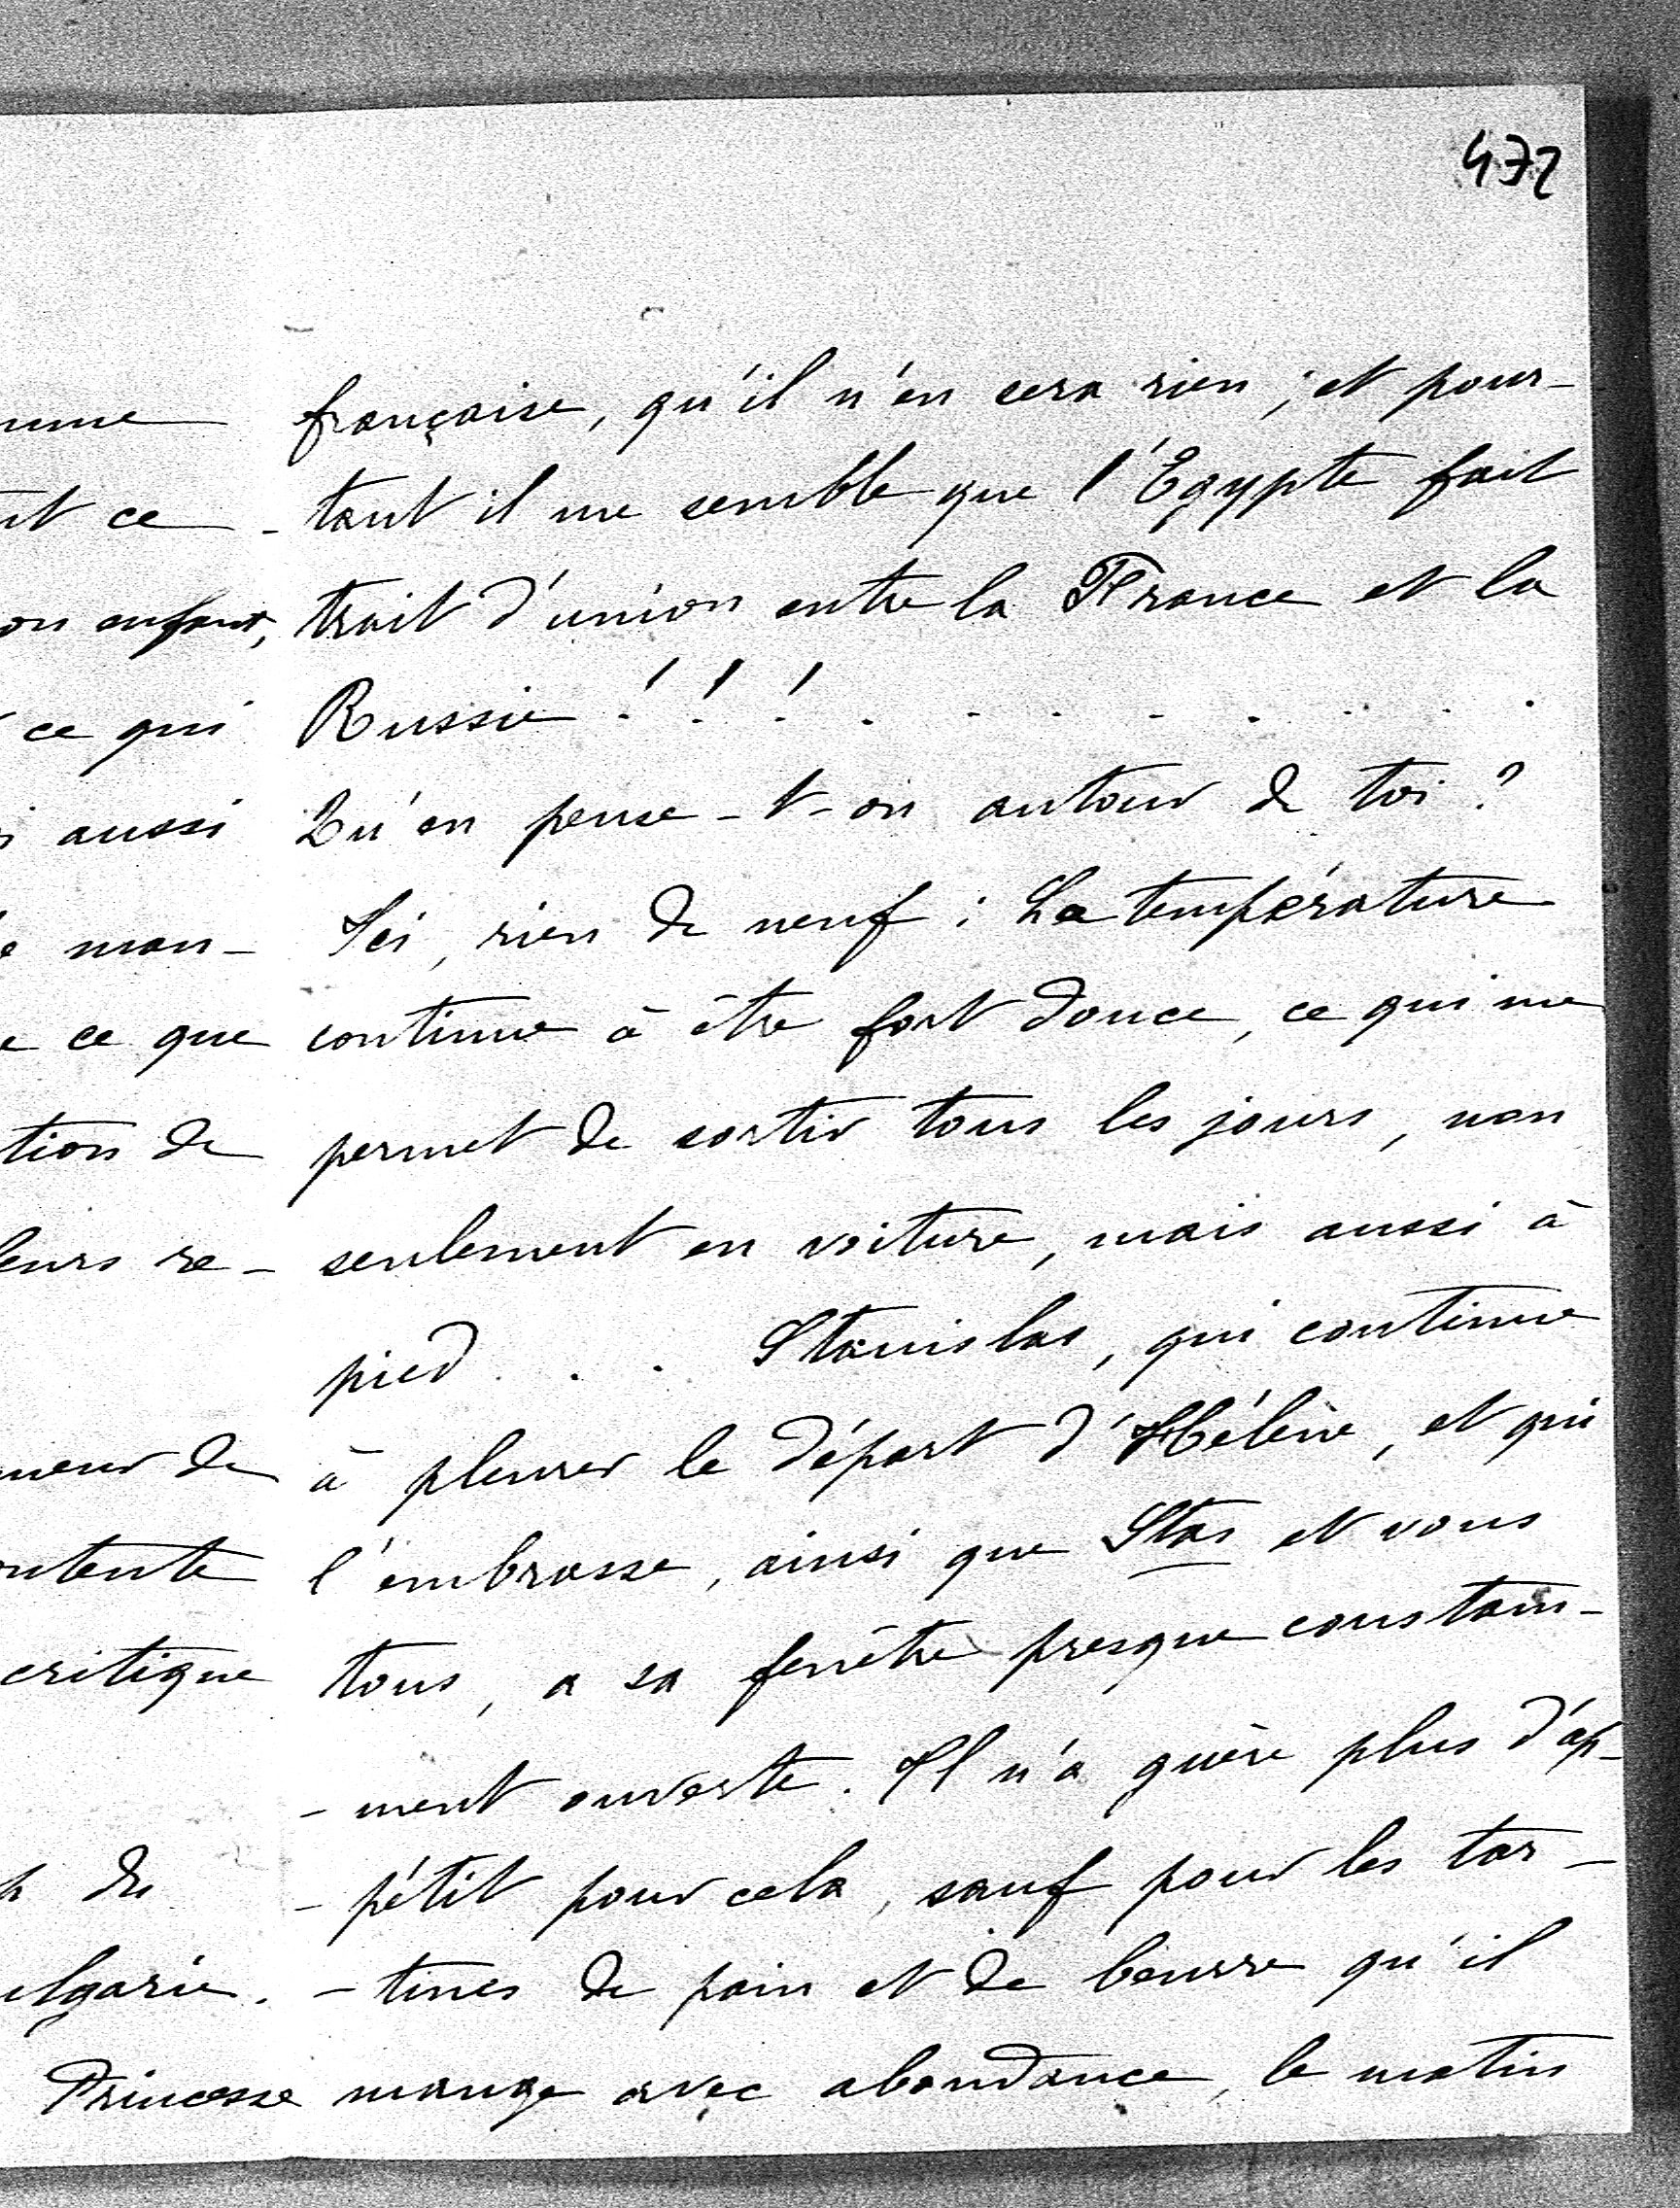 472
française, qu'il n'en sera rien ; et pour-
-tant il me semble que l'Egypte fait
trait d'union entre la France et la
Russie ! ! ! . . . . . . . .
Qu'en pense-t-on autour de toi ?
Ici, rien de neuf : La température
continue à être fort douce, ce qui me
permet de sortir tous les jours, non
seulement en voiture, mais aussi à
pied . . . Stanislas, qui continue
à pleurer le départ d'Hélène, et qui
l'embrasse, ainsi que Stas et vous
tous, a sa fenêtre presque constam-
-ment ouverte. Il n'a guère plus d'ap-
-pétit pour cela, sauf pour les tar-
-tines de pain et de beurre qu'il
mange avec abondance, le matin
ce
enfant,
ce qui
aussi
man-
ce que
tion de
re-
de
critique
du
Princesse